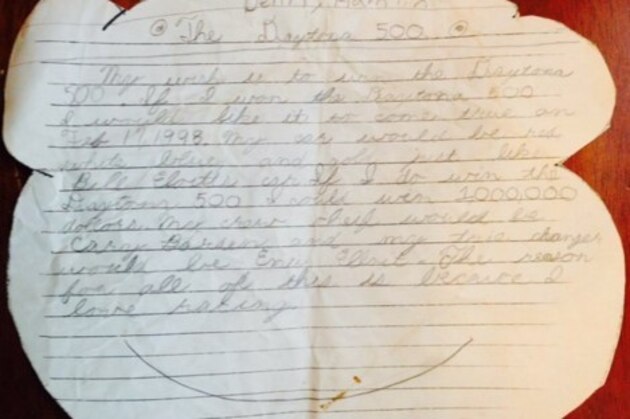 Denny Hamlin
The Daytona 500
My wish is to win the Daytona
500. If I won the Daytona 500
I would like it to come true on
Feb 17 1998. My car would be red
white blue and gold just like
Bill car If I do win the
Daytona 500 I could win 1000,000
My crew would be
and my tire changer
would be The reason
for all of this is because I
love